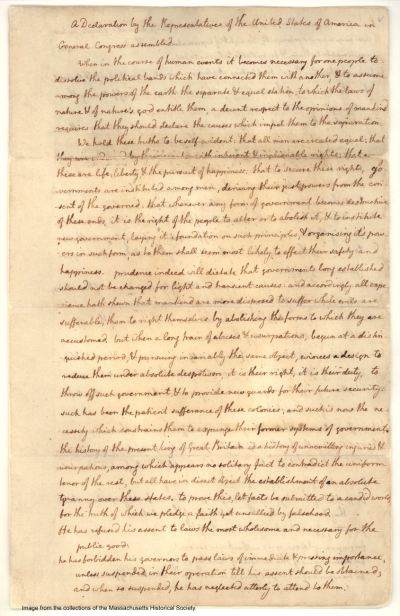 A Declaration by the Representatives of the United States of America in
General Congress assembled.
When in the course of human events it becomes necessary for one people to
dissolve the political bands which have connected them with another, & to assume
among the powers of the earth the separate & equal station, to which the laws of
nature & of nature's god entitle them, a decent respect to the opinions of mankind
requires that they should declare the causes which impel them to the separation.
We hold these truths to be self-evident; that all men are created equal; that
they are with inherent & inalienable rights; that
these are life, liberty & the pursuit of happiness; that to secure these rights, go-
vernments are instituted among men, deriving their just powers from the con-
sent of the governed; that whenever any form of government becomes destructive
of these ends, it is the right of the people to alter or to abolish it, & to institute
new government, laying it's foundation on such principles, & organising it's pow-
ers in such form, as to them shall seem most likely to effect their safety and
happiness. prudence indeed will dictate that governments long established
should not be changed for light and transient causes: and accordingly all expe-
rience hath shewn that mankind are more disposed to suffer while evils are
sufferable, than to right themselves by abolishing the forms to which they are
accustomed. but when a long train of abuses & usurpations, begun at a distin-
guished period, & pursuing invariably the same object, evinces a design to
reduce them under absolute despotism, it is their right, it is their duty, to
throw off such government, & to provide new guards for their future security.
such has been the patient sufferance of these colonies; and such is now the ne-
cessity which constrains them to expunge their former systems of government.
the history of the present king of Great Britain is a history of unremitting injuries &
usurpations, among which appears no solitary fact to contradict the uniform
tenor of the rest, but all have in direct object the establishment of an absolute
tyranny over these states. to prove this, let facts be submitted to a candid world,
for the truth of which we pledge a faith yet unsullied by falsehood.
He has refused his assent to laws the most wholesome and necessary for the
public good.
he has forbidden his governors to pass laws of immediate & pressing importance,
unless suspended in their operation till his assent should be obtained;
and when so suspended, he has neglected utterly to attend to them.
Image from the collections of the Massachusetts Historical Society